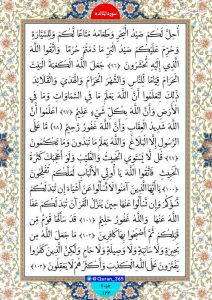 سورة المائدة
أُحِلَّ لَكُمْ صَيْدُ الْبَحْرِ وَطَعَامُهُ مَتَاعًا لَكُمْ وَلِلسَّيَّارَةِ
وَحُرِّمَ عَلَيْكُمْ صَيْدُ الْبَرِّ مَا دُمْتُمْ حُرُمًا وَاتَّقُوا اللَّهَ
الَّذِي إِلَيْهِ تُحْشَرُونَ (٩٦) جَعَلَ اللَّهُ الْكَعْبَةَ الْبَيْتَ
الْحَرَامَ قِيَامًا لِلنَّاسِ وَالشَّهْرَ الْحَرَامَ وَالْهَدْيَ وَالْقَلَائِدَ
ذَلِكَ لِتَعْلَمُوا أَنَّ اللَّهَ يَعْلَمُ مَا فِي السَّمَاوَاتِ وَمَا فِي
الْأَرْضِ وَأَنَّ اللَّهَ بِكُلِّ شَيْءٍ عَلِيمٌ (٩٧) اعْلَمُوا أَنَّ
اللَّهَ شَدِيدُ الْعِقَابِ وَأَنَّ اللَّهَ غَفُورٌ رَحِيمٌ (٩٨) مَا عَلَى
الرَّسُولِ إِلَّا الْبَلَاغُ وَاللَّهُ يَعْلَمُ مَا تُبْدُونَ وَمَا تَكْتُمُونَ
(٩٩) قُلْ لَا يَسْتَوِي الْخَبِيثُ وَالطَّيِّبُ وَلَوْ أَعْجَبَكَ كَثْرَةُ
الْخَبِيثِ فَاتَّقُوا اللَّهَ يَا أُولِي الْأَلْبَابِ لَعَلَّكُمْ تُفْلِحُونَ
(١٠٠) يَا أَيُّهَا الَّذِينَ آمَنُوا لَا تَسْأَلُوا عَنْ أَشْيَاءَ إِنْ تُبْدَ لَكُمْ
تَسُؤْكُمْ وَإِنْ تَسْأَلُوا عَنْهَا حِينَ يُنَزَّلُ الْقُرْآنُ تُبْدَ لَكُمْ عَفَا
اللَّهُ عَنْهَا وَاللَّهُ غَفُورٌ حَلِيمٌ (١٠١) قَدْ سَأَلَهَا قَوْمٌ مِنْ
قَبْلِكُمْ ثُمَّ أَصْبَحُوا بِهَا كَافِرِينَ (١٠٢) مَا جَعَلَ اللَّهُ مِنْ
بَحِيرَةٍ وَلَا سَائِبَةٍ وَلَا وَصِيلَةٍ وَلَا حَامٍ وَلَكِنَّ الَّذِينَ كَفَرُوا
يَفْتَرُونَ عَلَى اللَّهِ الْكَذِبَ وَأَكْثَرُهُمْ لَا يَعْقِلُونَ (١٠٣)
@Quran_365
جزء ٧
١٢٤